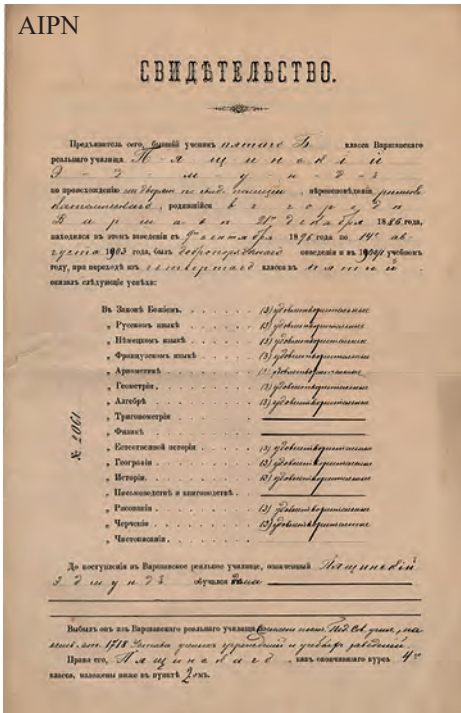 AIPN
СВИДѢТЕЛЬСТВО.
Предъявитель сего, бывшій ученикъ пятаго Б класса Варшавскаго
реальнаго училища П-я щ и н с к і й
Э - д - м - у - н - д - ъ
по происхожденію изъ дворянъ по свид. полиціи, вѣроисповѣданія римско-
католическаго, родившійся въ городѣ
В а р ш а в ѣ 21го декабря 1886 года,
находился въ этомъ заведеніи съ сентября 1896 года по 14е ав-
густа 1903 года, былъ добропорядочнаго поведенія и въ учебномъ
году, при переходѣ изъ четвертаго класса въ пятый
оказалъ слѣдующіе успѣхи:
Въ Законѣ Божіемъ. (3) удовлетворительные
„ Русскомъ языкѣ (3) удовлетворительные
„ Нѣмецкомъ языкѣ (3) удовлетворительные
„ Французскомъ языкѣ (3) удовлетворительные
„ Ариѳметикѣ удовлетворительные
„ Геометріи (3) удовлетворительные
„ Алгебрѣ (3) удовлетворительные
„ Тригонометріи
„ Физикѣ
„ Естественной исторіи (3) удовлетворительные
„ Географіи (3) удовлетворительные
„ Исторіи. (3) удовлетворительные
„ Письмоводствѣ и книговодствѣ
„ Рисованіи (3) удовлетворительные
„ Черченіи (3) удовлетворительные
„ Чистописаніи
№ 2061
До поступленія въ Варшавское реальное училище, означенный Пящинскій
Э д м у н д ъ обучался дома
Выбылъ онъ изъ Варшавскаго реальнаго училища Пед. Сов. учил., на
1718 Устава ученыхъ учрежденій и учебн. заведеній.
Права его, Пящинскаго, какъ окончившаго курсъ 4го
класса, изложены ниже въ пунктѣ 2омъ.